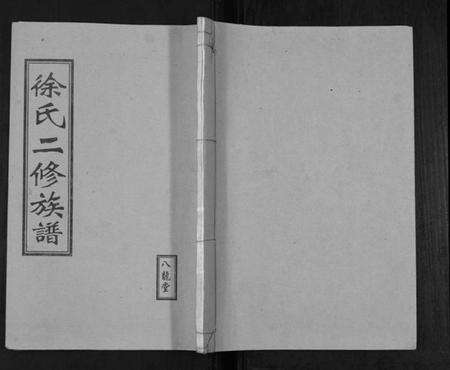 徐氏二修族譜
八龍堂